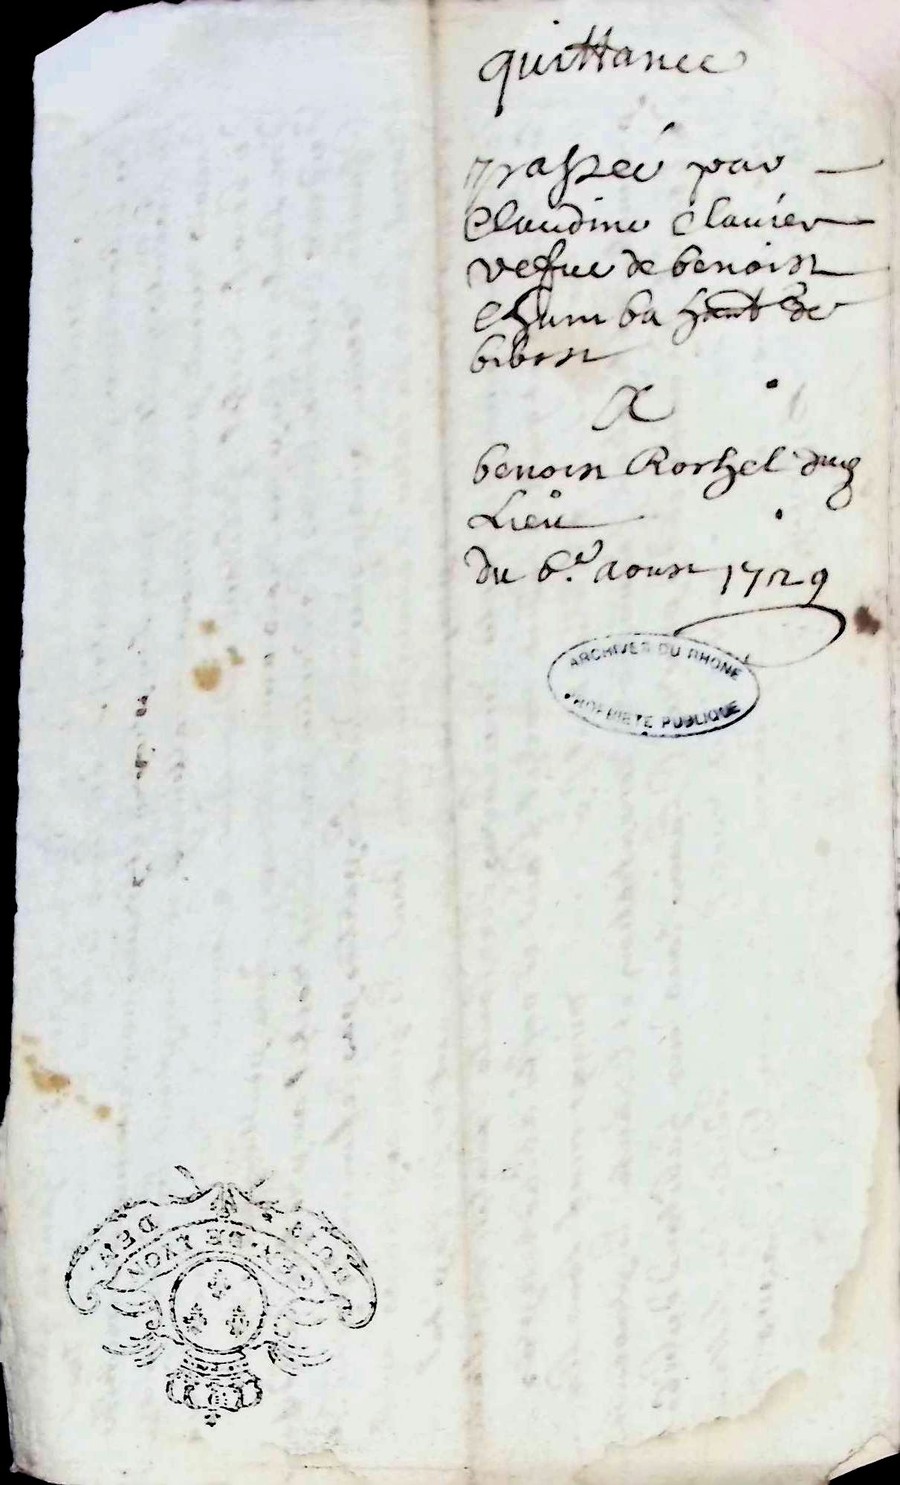 quittance
passée par
Claudine Clavier
vefue de benoist
Chamba haut de
bibost
A
benoist Rochel dud
Lieu
du 6.e aoust 1729
ARCHIVES DU RHONE
PROPRIETE PUBLIQUE
GEN. DE LYON
DEN.